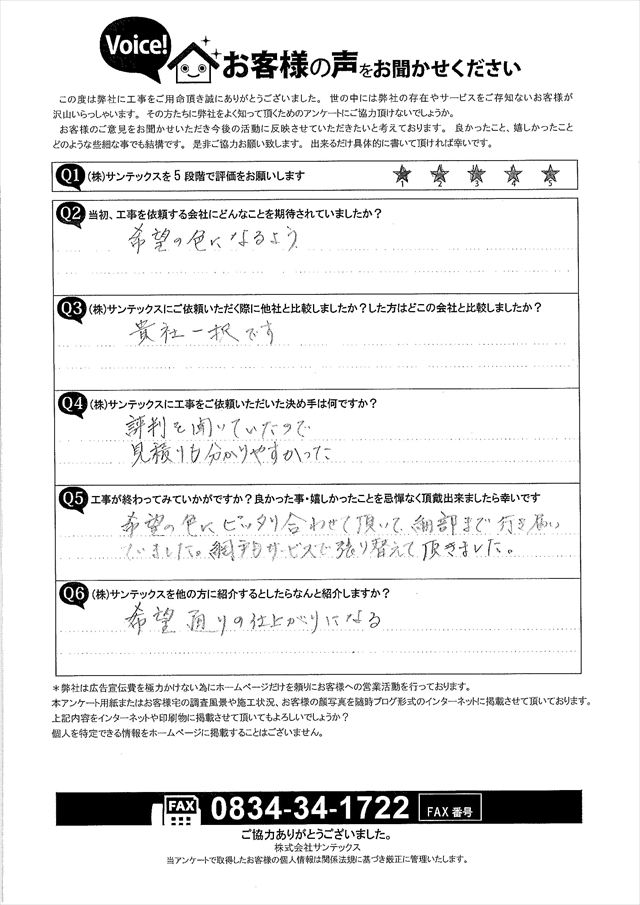 Voice!
お客様の声をお聞かせください
この度は弊社に工事をご用命頂き誠にありがとうございました。 世の中には弊社の存在やサービスをご存知ないお客様が
沢山いらっしゃいます。 その方たちに弊社をよく知って頂くためのアンケートにご協力頂けないでしょうか。
お客様のご意見をお聞かせいただき今後の活動に反映させていただきたいと考えております。 良かったこと、嬉しかったこと
どのような些細な事でも結構です。 是非ご協力お願い致します。 出来るだけ具体的に書いて頂ければ幸いです。
Q1 (株)サンテックスを5段階で評価をお願いします
1 2 3 4 5
Q2 当初、工事を依頼する会社にどんなことを期待されていましたか？
希望の色になるよう
Q3 (株)サンテックスにご依頼いただく際に他社と比較しましたか？した方はどこの会社と比較しましたか？
貴社一択です
Q4 (株)サンテックスに工事をご依頼いただいた決め手は何ですか？
評判を聞いていたので
見積りも分かりやすかった
Q5 工事が終わってみていかがですか？良かった事・嬉しかったことを忌憚なく頂戴出来ましたら幸いです
希望の色にピッタリ合わせて頂いて、細部まで行き届い
ていました。網戸もサービスで張り替えて頂きました。
Q6 (株)サンテックスを他の方に紹介するとしたらなんと紹介しますか？
希望通りの仕上がりになる
＊弊社は広告宣伝費を極力かけない為にホームページだけを頼りにお客様への営業活動を行っております。
本アンケート用紙またはお客様宅の調査風景や施工状況、お客様の顔写真を随時ブログ形式のインターネットに掲載させて頂いております。
上記内容をインターネットや印刷物に掲載させて頂いてもよろしいでしょうか？
個人を特定できる情報をホームページに掲載することはございません。
FAX 0834-34-1722 FAX 番号
ご協力ありがとうございました。
株式会社サンテックス
当アンケートで取得したお客様の個人情報は関係法規に基づき厳正に管理いたします。